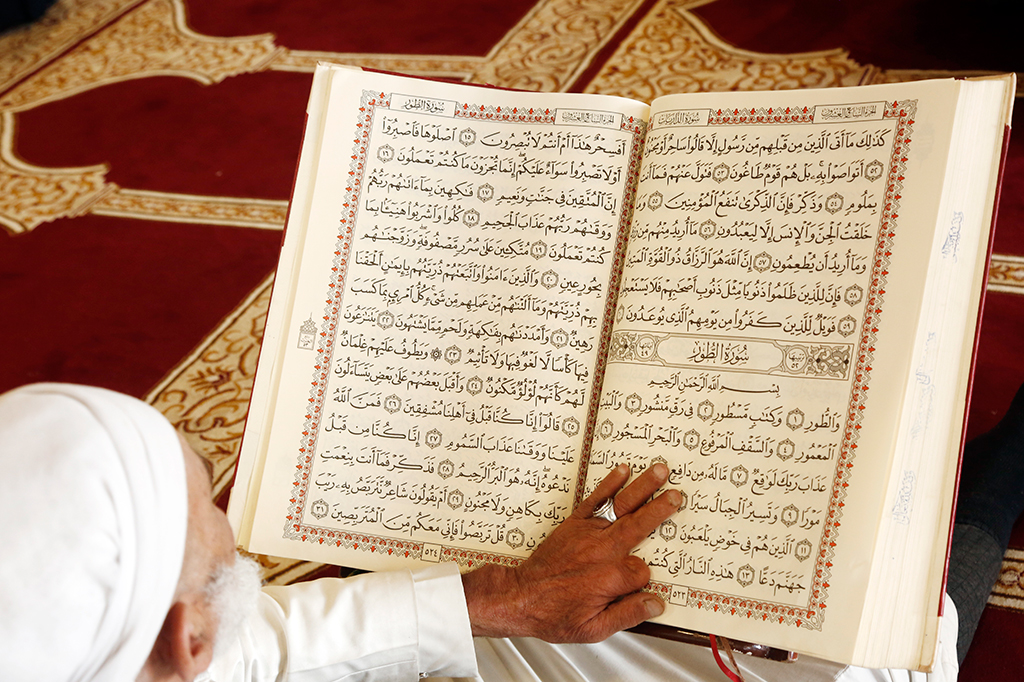 سُورَةُ الذَّارِيَاتِ الجُزْءُ السَّابِعُ وَالعِشْرُونَ
كَذَٰلِكَ مَآ أَتَى ٱلَّذِينَ مِن قَبْلِهِم مِّن رَّسُولٍ إِلَّا قَالُوا۟ سَاحِرٌ أَوْ
٥٢ أَتَوَاصَوْا۟ بِهِۦ ۚ بَلْ هُمْ قَوْمٌ طَاغُونَ ٥٣ فَتَوَلَّ عَنْهُمْ فَمَآ
بِمَلُومٍ ٥٤ وَذَكِّرْ فَإِنَّ ٱلذِّكْرَىٰ تَنفَعُ ٱلْمُؤْمِنِينَ ٥٥
خَلَقْتُ ٱلْجِنَّ وَٱلْإِنسَ إِلَّا لِيَعْبُدُونِ ٥٦ مَآ أُرِيدُ مِنْهُم مِّن
وَمَآ أُرِيدُ أَن يُطْعِمُونِ ٥٧ إِنَّ ٱللَّهَ هُوَ ٱلرَّزَّاقُ ذُو ٱلْقُوَّةِ
٥٨ فَإِنَّ لِلَّذِينَ ظَلَمُوا۟ ذَنُوبًا مِّثْلَ ذَنُوبِ أَصْحَٰبِهِمْ فَلَا
٥٩ فَوَيْلٌ لِّلَّذِينَ كَفَرُوا۟ مِن يَوْمِهِمُ ٱلَّذِى يُوعَدُونَ
سُورَةُ الطُّورِ
بِسْمِ ٱللَّهِ ٱلرَّحْمَٰنِ ٱلرَّحِيمِ
وَٱلطُّورِ ١ وَكِتَٰبٍ مَّسْطُورٍ ٢ فِى رَقٍّ مَّنشُورٍ ٣
ٱلْمَعْمُورِ ٤ وَٱلسَّقْفِ ٱلْمَرْفُوعِ ٥ وَٱلْبَحْرِ ٱلْمَسْجُورِ ٦
عَذَابَ رَبِّكَ لَوَٰقِعٌ ٧ مَّا لَهُۥ مِن دَافِعٍ
مَوْرًا ٩ وَتَسِيرُ ٱلْجِبَالُ سَيْرًا
١١ ٱلَّذِينَ هُمْ فِى خَوْضٍ يَلْعَبُونَ ١٢
جَهَنَّمَ دَعًّا ١٣ هَٰذِهِ ٱلنَّارُ ٱلَّتِى كُنتُم
٥٢٣
سُورَةُ الطُّورِ الجُزْءُ السَّابِعُ وَالعِشْرُونَ
أَفَسِحْرٌ هَٰذَآ أَمْ أَنتُمْ لَا تُبْصِرُونَ ١٥ ٱصْلَوْهَا فَٱصْبِرُوٓا۟
أَوْ لَا تَصْبِرُوا۟ سَوَآءٌ عَلَيْكُمْ ۖ إِنَّمَا تُجْزَوْنَ مَا كُنتُمْ تَعْمَلُونَ ١٦
إِنَّ ٱلْمُتَّقِينَ فِى جَنَّٰتٍ وَنَعِيمٍ ١٧ فَٰكِهِينَ بِمَآ ءَاتَىٰهُمْ رَبُّهُمْ
وَوَقَىٰهُمْ رَبُّهُمْ عَذَابَ ٱلْجَحِيمِ ١٨ كُلُوا۟ وَٱشْرَبُوا۟ هَنِيٓـًٔۢا بِمَا
كُنتُمْ تَعْمَلُونَ ١٩ مُتَّكِـِٔينَ عَلَىٰ سُرُرٍ مَّصْفُوفَةٍ ۖ وَزَوَّجْنَٰهُم
بِحُورٍ عِينٍ ٢٠ وَٱلَّذِينَ ءَامَنُوا۟ وَٱتَّبَعَتْهُمْ ذُرِّيَّتُهُم بِإِيمَٰنٍ أَلْحَقْنَا
بِهِمْ ذُرِّيَّتَهُمْ وَمَآ أَلَتْنَٰهُم مِّنْ عَمَلِهِم مِّن شَىْءٍ ۚ كُلُّ ٱمْرِئٍۭ بِمَا كَسَبَ
رَهِينٌ ٢١ وَأَمْدَدْنَٰهُم بِفَٰكِهَةٍ وَلَحْمٍ مِّمَّا يَشْتَهُونَ ٢٢ يَتَنَٰزَعُونَ
فِيهَا كَأْسًا لَّا لَغْوٌ فِيهَا وَلَا تَأْثِيمٌ ٢٣ ۞ وَيَطُوفُ عَلَيْهِمْ غِلْمَانٌ
لَّهُمْ كَأَنَّهُمْ لُؤْلُؤٌ مَّكْنُونٌ ٢٤ وَأَقْبَلَ بَعْضُهُمْ عَلَىٰ بَعْضٍ يَتَسَآءَلُونَ
٢٥ قَالُوٓا۟ إِنَّا كُنَّا قَبْلُ فِىٓ أَهْلِنَا مُشْفِقِينَ ٢٦ فَمَنَّ ٱللَّهُ
عَلَيْنَا وَوَقَىٰنَا عَذَابَ ٱلسَّمُومِ ٢٧ إِنَّا كُنَّا مِن قَبْلُ
نَدْعُوهُ ۖ إِنَّهُۥ هُوَ ٱلْبَرُّ ٱلرَّحِيمُ ٢٨ فَذَكِّرْ فَمَآ أَنتَ بِنِعْمَتِ
رَبِّكَ بِكَاهِنٍ وَلَا مَجْنُونٍ ٢٩ أَمْ يَقُولُونَ شَاعِرٌ نَّتَرَبَّصُ بِهِۦ رَيْبَ
٣٠ قُلْ تَرَبَّصُوا۟ فَإِنِّى مَعَكُم مِّنَ ٱلْمُتَرَبِّصِينَ ٣١
٥٢٤